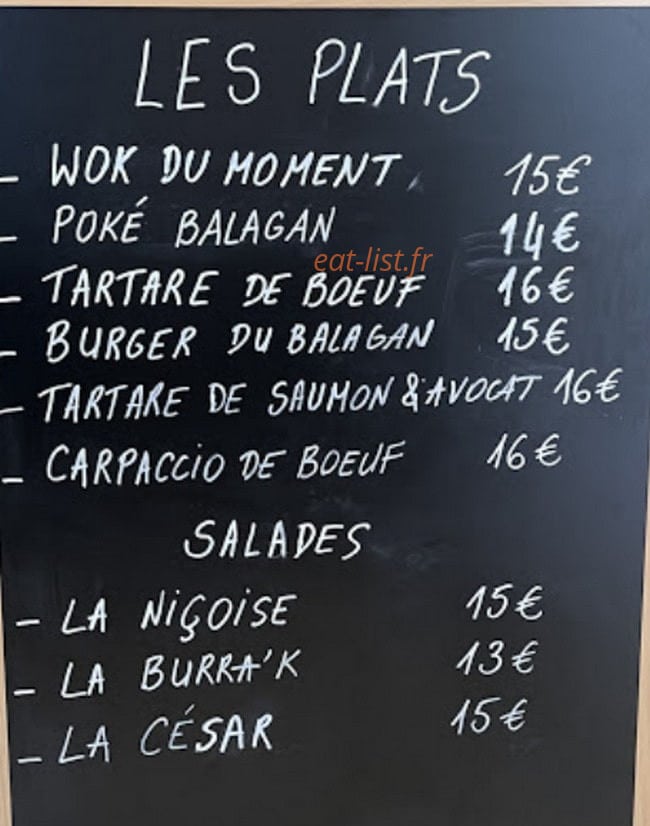 LES PLATS
- WOK DU MOMENT 15€
- POKÉ BALAGAN 14€
eat-list.fr
- TARTARE DE BOEUF 16€
- BURGER DU BALAGAN 15€
- TARTARE DE SAUMON & AVOCAT 16€
- CARPACCIO DE BOEUF 16€
SALADES
- LA NIÇOISE 15€
- LA BURRA'K 13€
- LA CÉSAR 15€